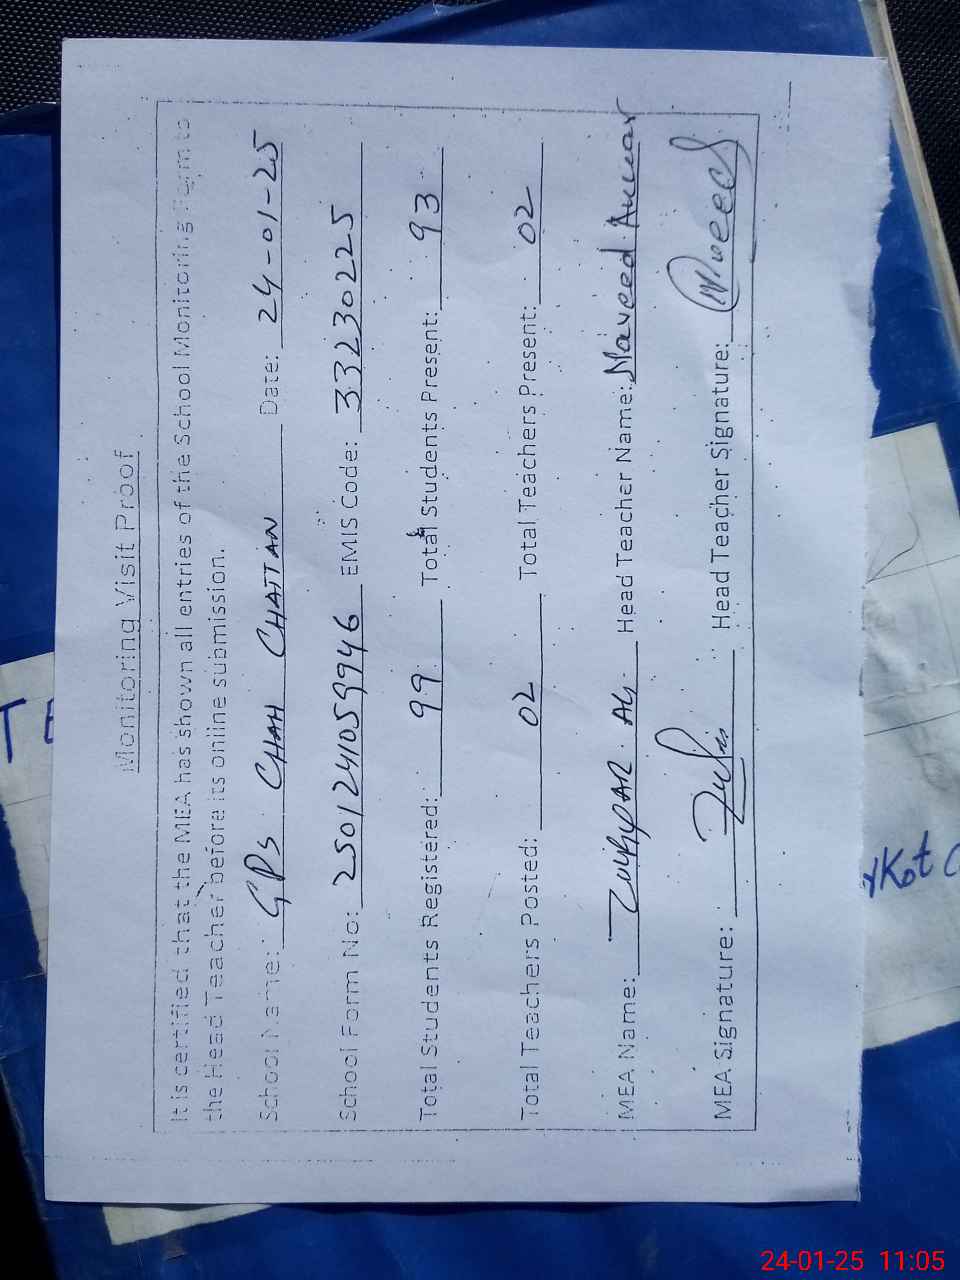 Monitoring Visit Proof
It is certified that the MEA has shown all entries of the School Monitoring Form to
the Head Teacher before its online submission.
School Name: GPS CHAH CHATTAN Date: 24-01-25
School Form No: 2501241059946 EMIS Code: 33230225
Total Students Registered: 99 Total Students Present: 93
Total Teachers Posted: 02 Total Teachers Present: 02
MEA Name: Head Teacher Name: Naveed Anwar
MEA Signature: Head Teacher Signature: Naveed
Kot
24-01-25 11:05